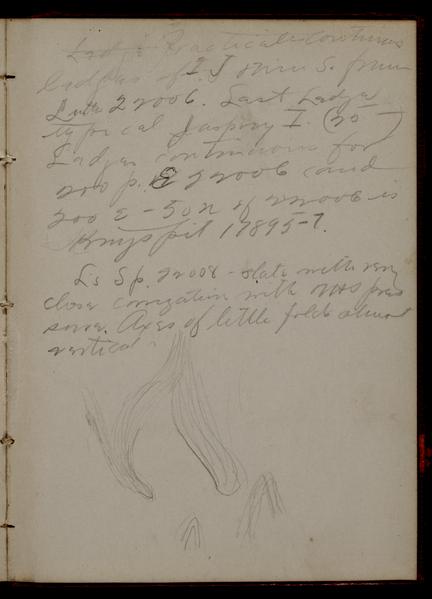 Led is Practically continuous
ledges of I J Mine S. from
22006. Last Ledge
typical Jaspery I. (20
Ledges continuous for
200 p. E 22006 and
200 E - 50 N of 22006 is
pit 17895-7.
Is Sp. 22008 - slate with very
close corrugation with pres
sure. Axes of little folds almost
vertical.